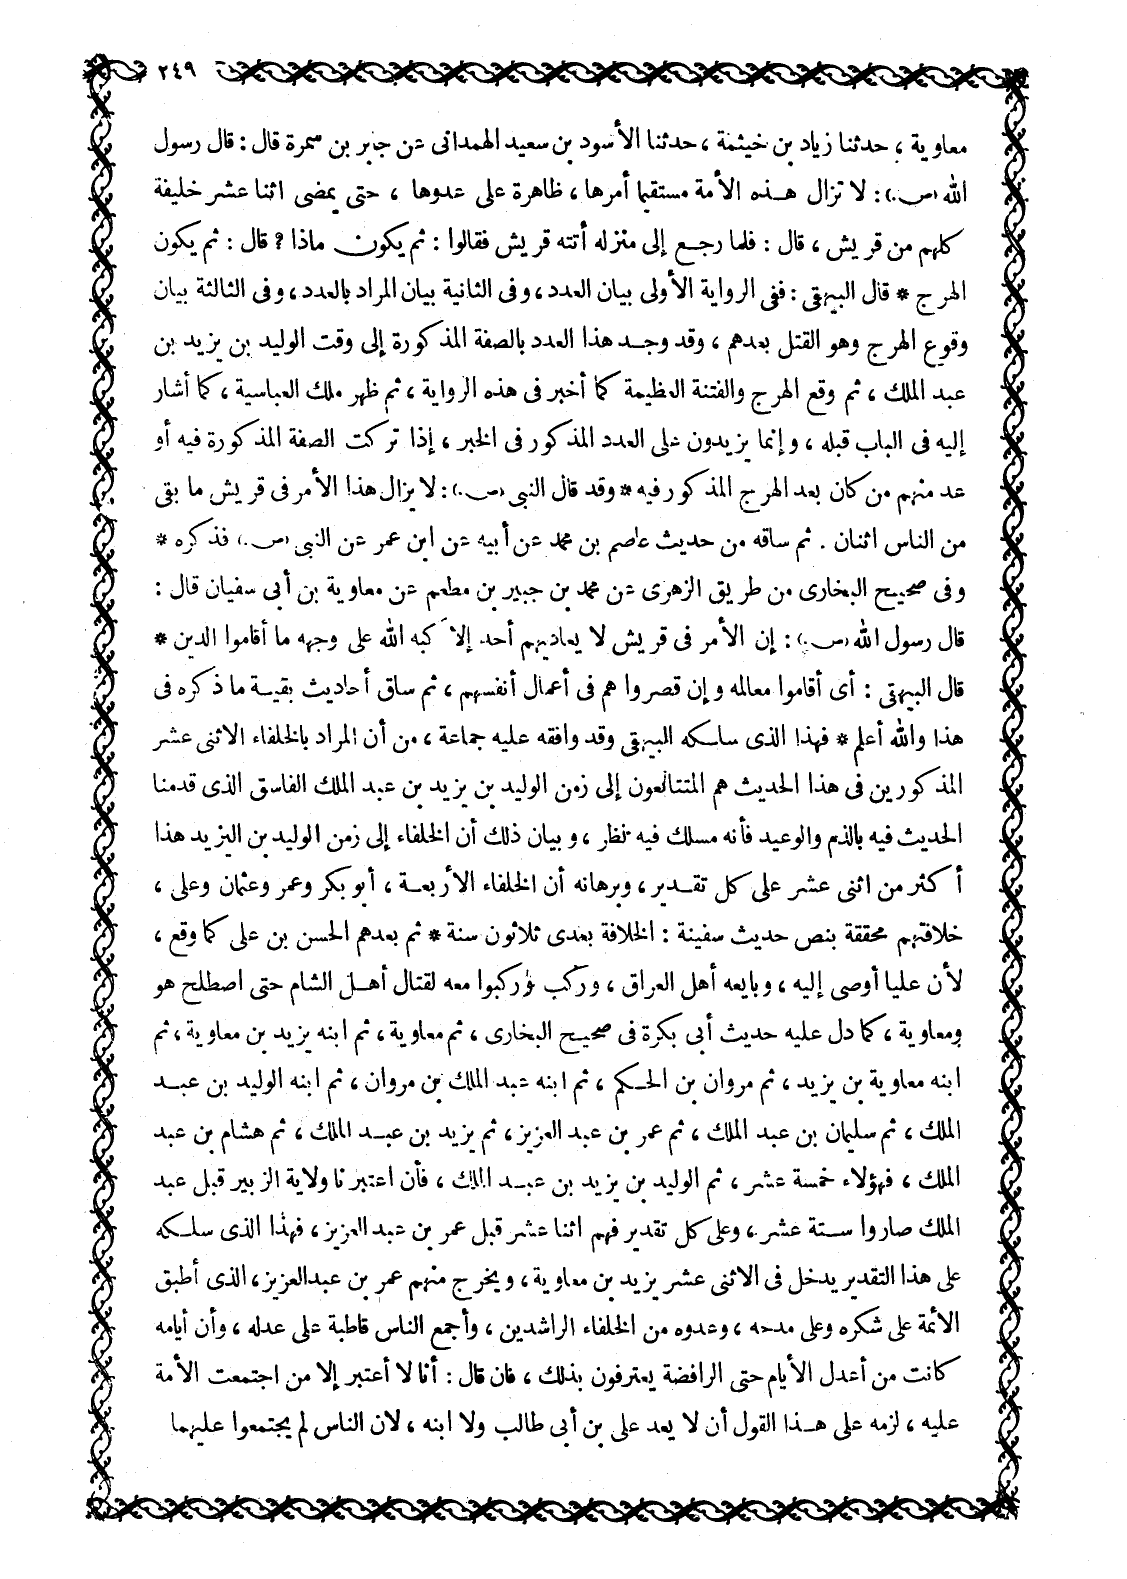 ٢٤٩
معاوية ، حدثنا زياد بن خيثمة ، حدثنا الأسود بن سعيد الهمدانى عن جابر بن سمرة قال : قال رسول
الله (ص.) : لا تزال هـذه الأمة مستقيما أمرها ، ظاهرة على عدوها ، حتى يمضى اثنا عشر خليفة
كلهم من قريش ، قال : فلما رجع إلى منزله أتته قريش فقالوا : ثم يكون ماذا ? قال : ثم يكون
الهرج * قال البيهقى : ففى الرواية الأولى بيان العدد ، وفى الثانية بيان المراد بالعدد ، وفى الثالثة بيان
وقوع الهرج وهو القتل بعدهم ، وقد وجـد هذا العدد بالصفة المذكورة إلى وقت الوليد بن يزيد بن
عبد الملك ، ثم وقع الهرج والفتنة العظيمة كما أخبر فى هذه الرواية ، ثم ظهر ملك العباسية ، كما أشار
إليه فى الباب قبله ، وإنما يزيدون على العدد المذكور فى الخبر ، إذا تركت الصفة المذكورة فيه أو
عد منهم من كان بعد الهرج المذكور فيه * وقد قال النبى (ص.) : لا يزال هذا الأمر فى قريش ما بقى
من الناس اثنان . ثم ساقه من حديث عاصم بن محمد عن أبيه عن ابن عمر عن النبى (ص.) فذكره *
وفى صحيح البخارى من طريق الزهرى عن محمد بن جبير بن مطعم عن معاوية بن أبى سفيان قال :
قال رسول الله (ص.) : إن الأمر فى قريش لا يعاديهم أحد إلا كبه الله على وجهه ما أقاموا الدين *
قال البيهقى : أى أقاموا معالمه وإن قصروا هم فى أعمال أنفسهم ، ثم ساق أحاديث بقية ما ذكره فى
هذا والله أعلم * فهذا الذى سلـكه البيهقى وقد وافقه عليه جماعة ، من أن المراد بالخلفاء الاثنى عشر
المذكورين فى هذا الحديث هم المتتابعون إلى زمن الوليد بن يزيد بن عبد الملك الفاسق الذى قدمنا
الحديث فيه بالذم والوعيد فأنه مسلك فيه نظر ، وبيان ذلك أن الخلفاء إلى زمن الوليد بن اليزيد هذا
أكثر من اثنى عشر على كل تقـدير ، وبرهانه أن الخلفاء الأربعـة ، أبو بكر وعمر وعثمان وعلى ،
خلافتهم محققة بنص حديث سفينة : الخلافة بعدى ثلاثون سنة * ثم بعدهم الحسن بن على كما وقع ،
لأن عليا أوصى إليه ، وبايعه أهل العراق ، وركب وركبوا معه لقتال أهـل الشام حتى اصطلح هو
ومعاوية ، كما دل عليه حديث أبى بكرة فى صحيح البخارى ، ثم معاوية ، ثم ابنه يزيد بن معاوية ، ثم
ابنه معاوية بن يزيد ، ثم مروان بن الحـكم ، ثم ابنه عبد الملك بن مروان ، ثم ابنه الوليد بن عبـد
الملك ، ثم سليمان بن عبد الملك ، ثم عمر بن عبد العزيز ، ثم يزيد بن عبـد الملك ، ثم هشام بن عبد
الملك ، فهؤلاء خمسة عشر ، ثم الوليد بن يزيد بن عبـد الملك ، فأن اعتبرنا ولاية الزبير قبل عبد
الملك صاروا ستـة عشر ، وعلى كل تقدير فهم اثنا عشر قبل عمر بن عبد العزيز ، فهذا الذى سلـكه
على هذا التقدير يدخل فى الاثنى عشر يزيد بن معاوية ، ويخرج منهم عمر بن عبدالعزيز ، الذى أطبق
الائمة على شكره وعلى مدحه ، وعدوه من الخلفاء الراشدين ، وأجمع الناس قاطبة على عدله ، وأن أيامه
كانت من أعدل الأيام حتى الرافضة يعترفون بذلك ، فان قال : أنا لا أعتبر إلا من اجتمعت الأمة
عليه ، لزمه على هـذا القول أن لا يعد على بن أبى طالب ولا ابنه ، لان الناس لم يجتمعوا عليهما